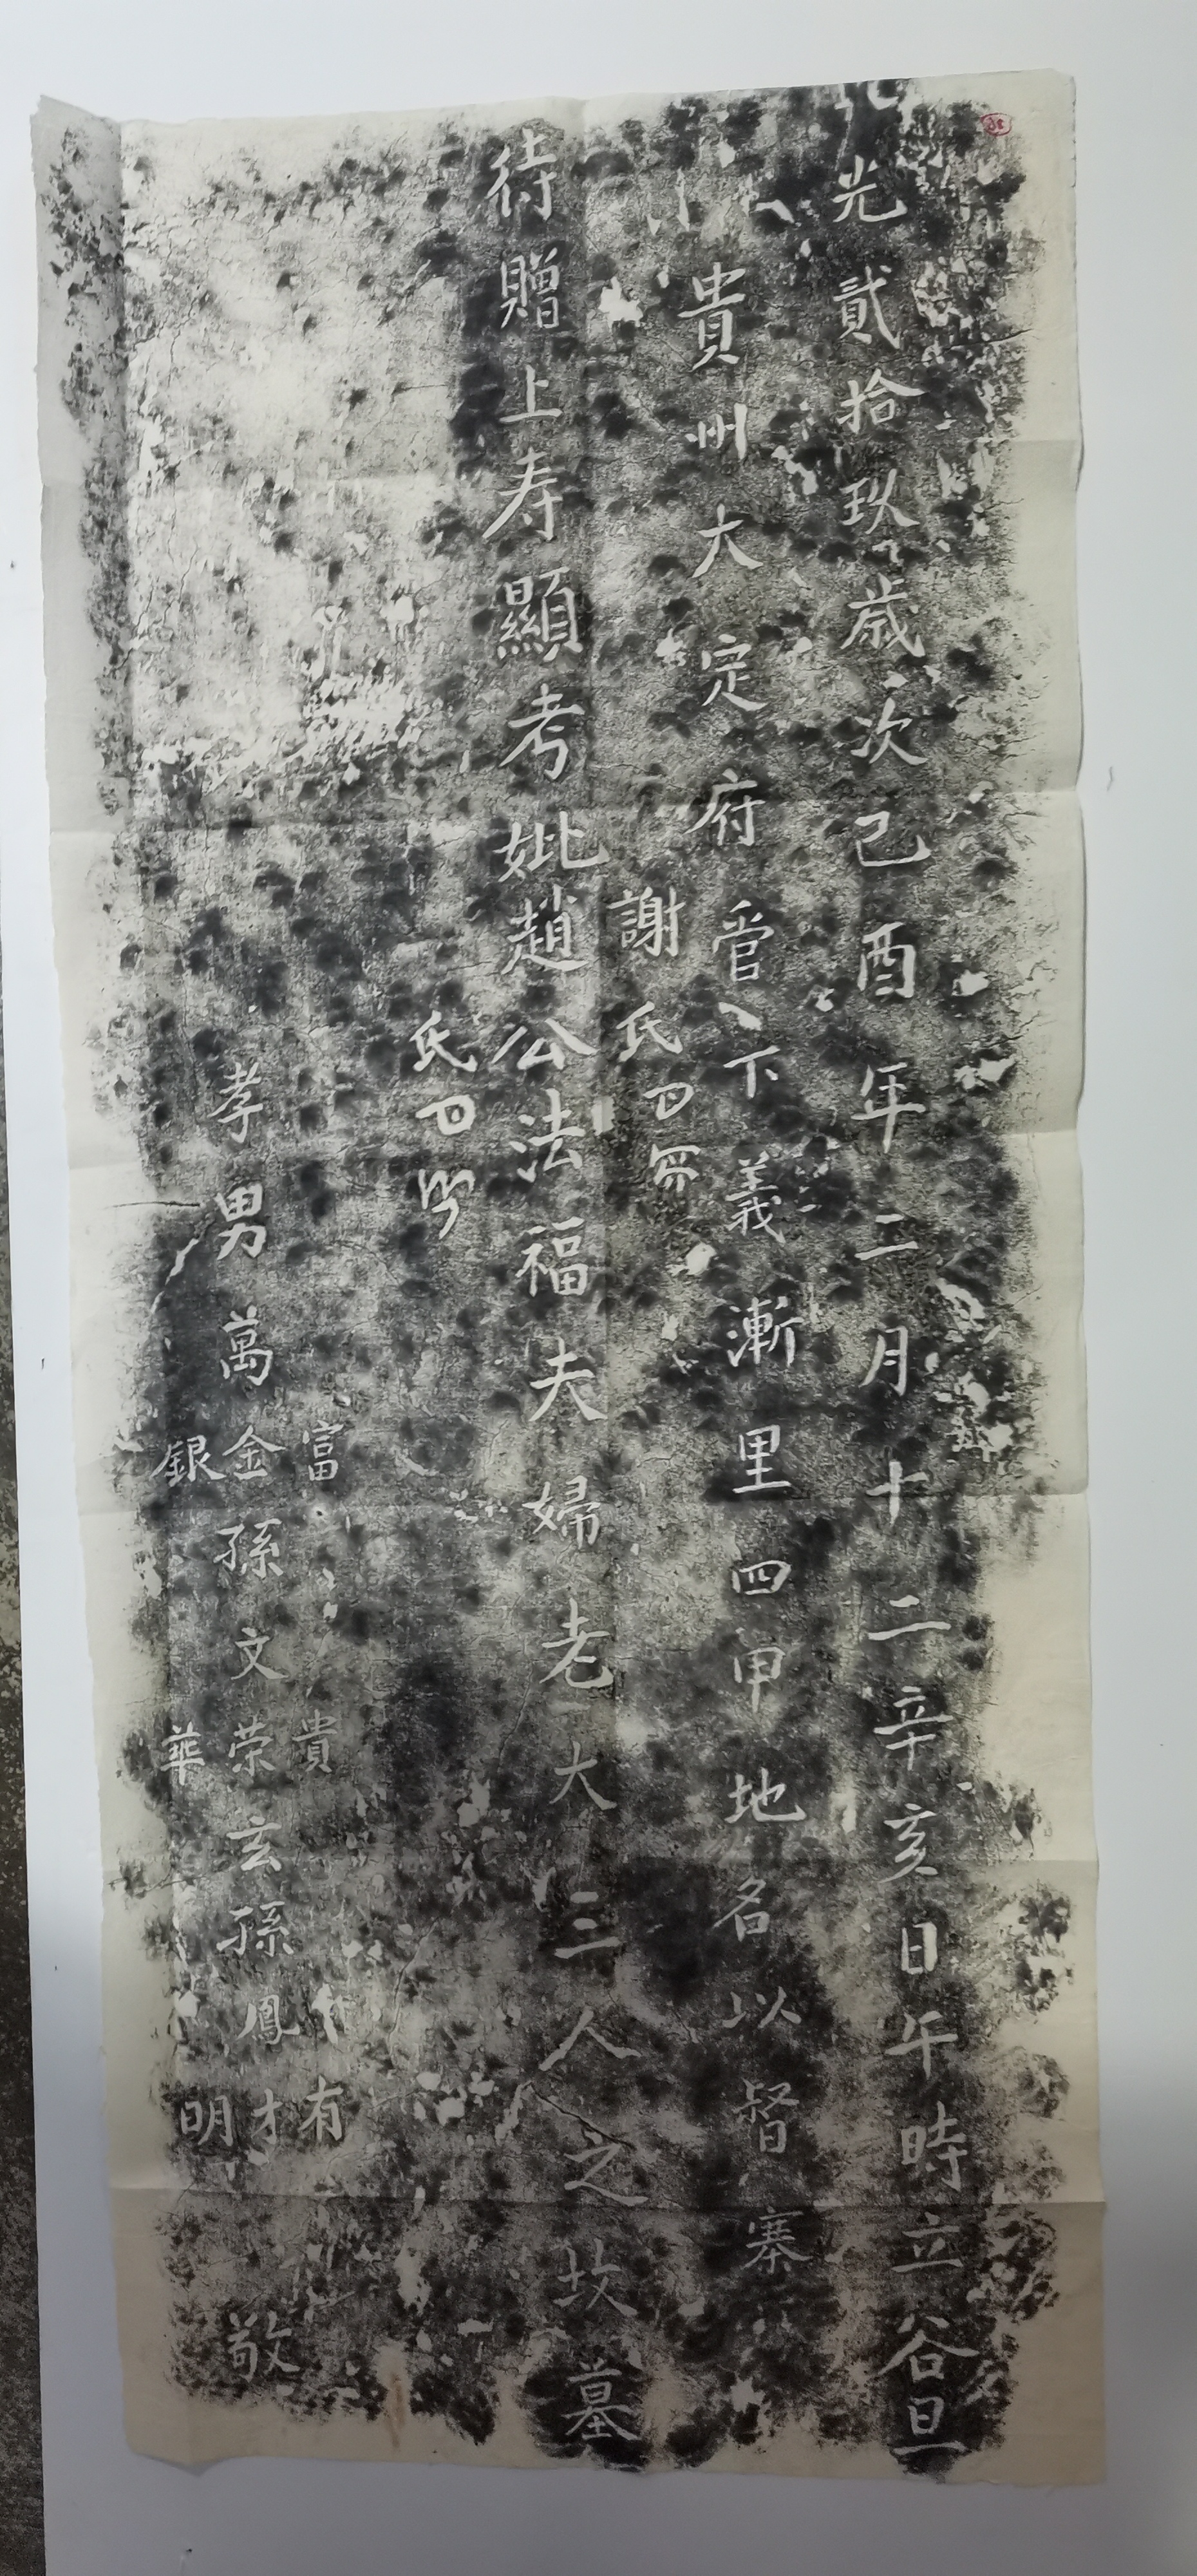 光貳拾玖歲次己酉年二月十二辛亥日午時立谷旦
貴州大定府管下義漸里四甲地名以督寨
謝氏
待贈上寿顯考妣趙公法福夫婦老大三人之坟墓
氏
富貴有
孝男萬金孫文荣玄孫鳳才敬
銀華明